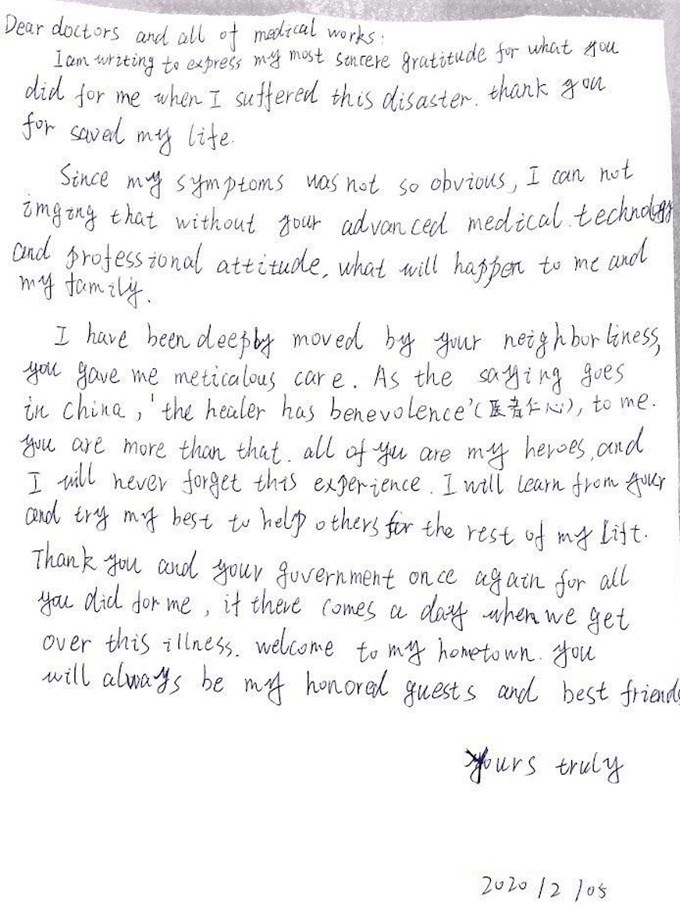 Dear doctors and all of medical works:
I am writing to express my most sincere gratitude for what you
did for me when I suffered this disaster. thank you
for saved my life.
Since my symptoms was not so obvious, I can not
imging that without your advanced medical technology
and professional attitude, what will happen to me and
my family.
I have been deeply moved by your neighborliness,
you gave me meticalous care. As the saying goes
in China, 'the healer has benevolence'(医者仁心), to me.
you are more than that. all of you are my heroes, and
I will never forget this experience. I will learn from your
and try my best to help others for the rest of my lift.
Thank you and your government once again for all
you did for me, if there comes a day when we get
over this illness. welcome to my hometown. you
will always be my honored guests and best friends
Yours truly
2020/2/05